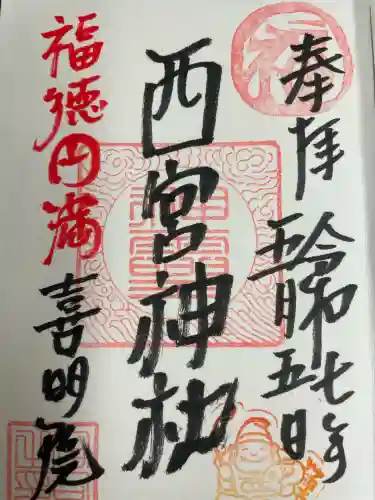 奉拝
令和七年
五月五日
西宮神社
福徳円満
喜明庵